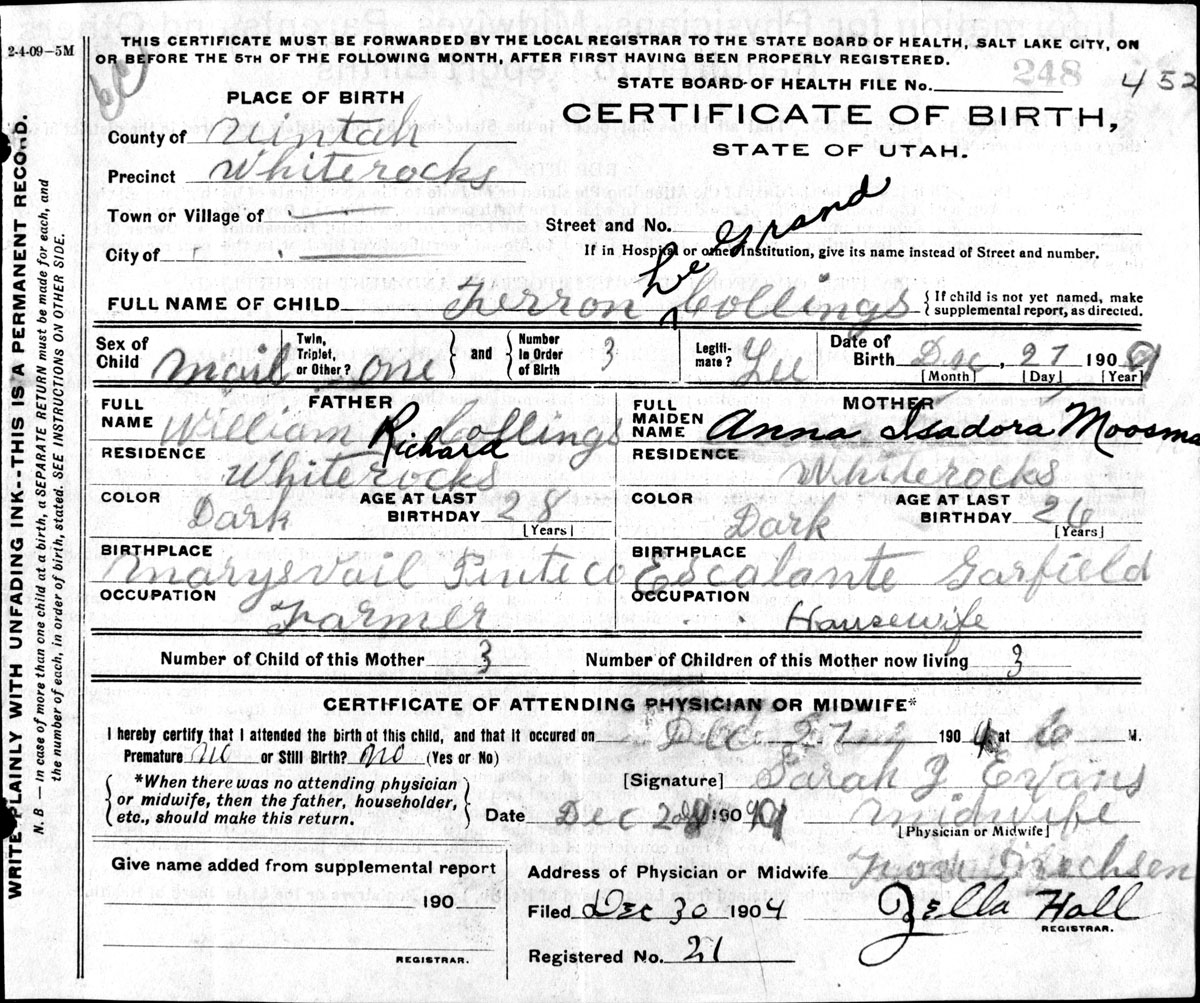 2-4-09-5M
THIS CERTIFICATE MUST BE FORWARDED BY THE LOCAL REGISTRAR TO THE STATE BOARD OF HEALTH, SALT LAKE CITY, ON
OR BEFORE THE 5TH OF THE FOLLOWING MONTH, AFTER FIRST HAVING BEEN PROPERLY REGISTERED.
248
STATE BOARD OF HEALTH FILE No. 452
PLACE OF BIRTH
CERTIFICATE OF BIRTH,
STATE OF UTAH.
County of Uintah
Precinct Whiterocks
Town or Village of
Street and No.
City of
If in Hospital or other Institution, give its name instead of Street and number.
FULL NAME OF CHILD Ferron Le Grand Collings { If child is not yet named, make
supplemental report, as directed.
Sex of Child Mail Twin, Triplet, or Other? one and Number in Order of Birth 3 Legitimate? Yee Date of Birth Dec, 27 1909
[Month] [Day] [Year]
FATHER
FULL NAME William Richard Collings
RESIDENCE Whiterocks
COLOR Dark AGE AT LAST BIRTHDAY 28
[Years]
BIRTHPLACE Marysvail Piute co
OCCUPATION Farmer
MOTHER
FULL MAIDEN NAME Anna Isadora Moosma
RESIDENCE Whiterocks
COLOR Dark AGE AT LAST BIRTHDAY 26
[Years]
BIRTHPLACE Escalante Garfield
OCCUPATION Housewife
Number of Child of this Mother 3 Number of Children of this Mother now living 3
CERTIFICATE OF ATTENDING PHYSICIAN OR MIDWIFE*
I hereby certify that I attended the birth of this child, and that it occured on Dec 27 190 at M.
Premature no or Still Birth? no (Yes or No)
*When there was no attending physician
or midwife, then the father, householder,
etc., should make this return.
[Signature] Sarah J Evans
Date Dec 190 midwife
[Physician or Midwife]
Give name added from supplemental report
190
REGISTRAR.
Address of Physician or Midwife
Filed Dec 30 1904 Zella Hall
REGISTRAR.
Registered No. 21
WRITE PLAINLY WITH UNFADING INK--THIS IS A PERMANENT RECORD.
N. B.—In case of more than one child at a birth, a SEPARATE RETURN must be made for each, and
the number of each, in order of birth, stated. SEE INSTRUCTIONS ON OTHER SIDE.